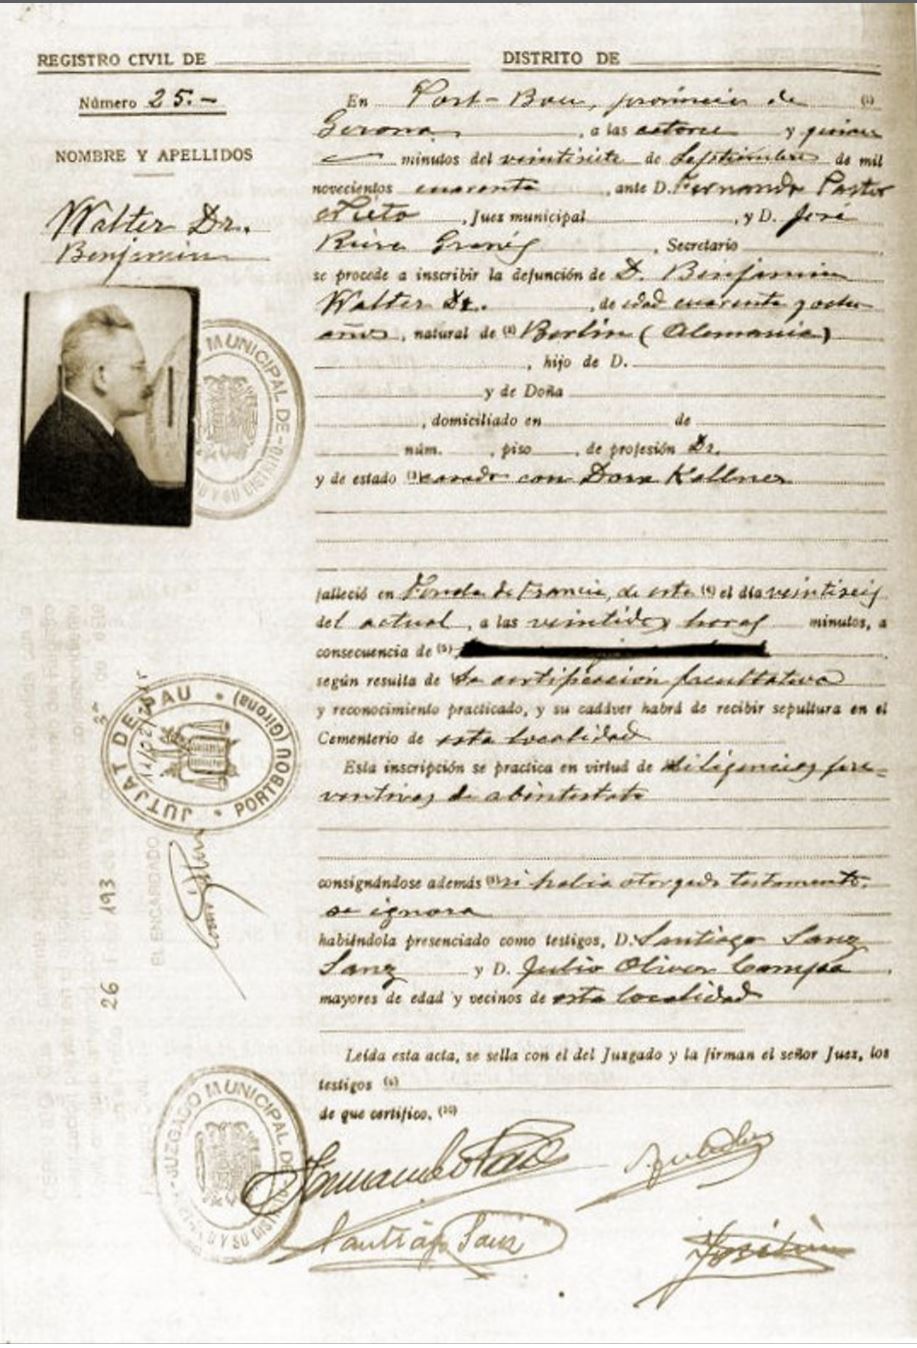 REGISTRO CIVIL DE DISTRITO DE
Número 25.-
NOMBRE Y APELLIDOS
Walter Dr.
Benjamin
En Port-Bou, provincia de (1)
Gerona, a las catorce y quince
minutos del veintisiete de Septiembre de mil
novecientos cuarenta, ante D. Fernando Pastor
Nieto, Juez municipal, y D. José
, Secretario
se procede a inscribir la defunción de D. Benjamin
Walter Dr., de edad cuarenta y ocho
años, natural de (2) Berlin (Alemania)
, hijo de D.
y de Doña
, domiciliado en de
núm. , piso , de profesión Dr.
y de estado (3) casado con Dora Kellner
falleció en Fonda de Francia, de esta (4) el día veintiseis
del actual, a las veintidos horas minutos, a
consecuencia de (5)
según resulta de la certificación facultativa
y reconocimiento practicado, y su cadáver habrá de recibir sepultura en el
Cementerio de esta localidad
Esta inscripción se practica en virtud de diligencias pre-
ventivas de abintestato
consignándose además si habia otorgado testamento,
se ignora
habiéndola presenciado como testigos, D. Santiago Sanz
Sanz y D. Julio Oliver Campá
mayores de edad y vecinos de esta localidad
Leída esta acta, se sella con el del Juzgado y la firman el señor Juez, los
testigos
de que certifico. (10)
MUNICIPAL DE
Y SU DISTRITO
JUTJAT DE PAU • PORTBOU (Girona) •
EL ENCARGADO
26 193
JUZGADO MUNICIPAL DE
Y SU DISTRITO
Santiago Sanz